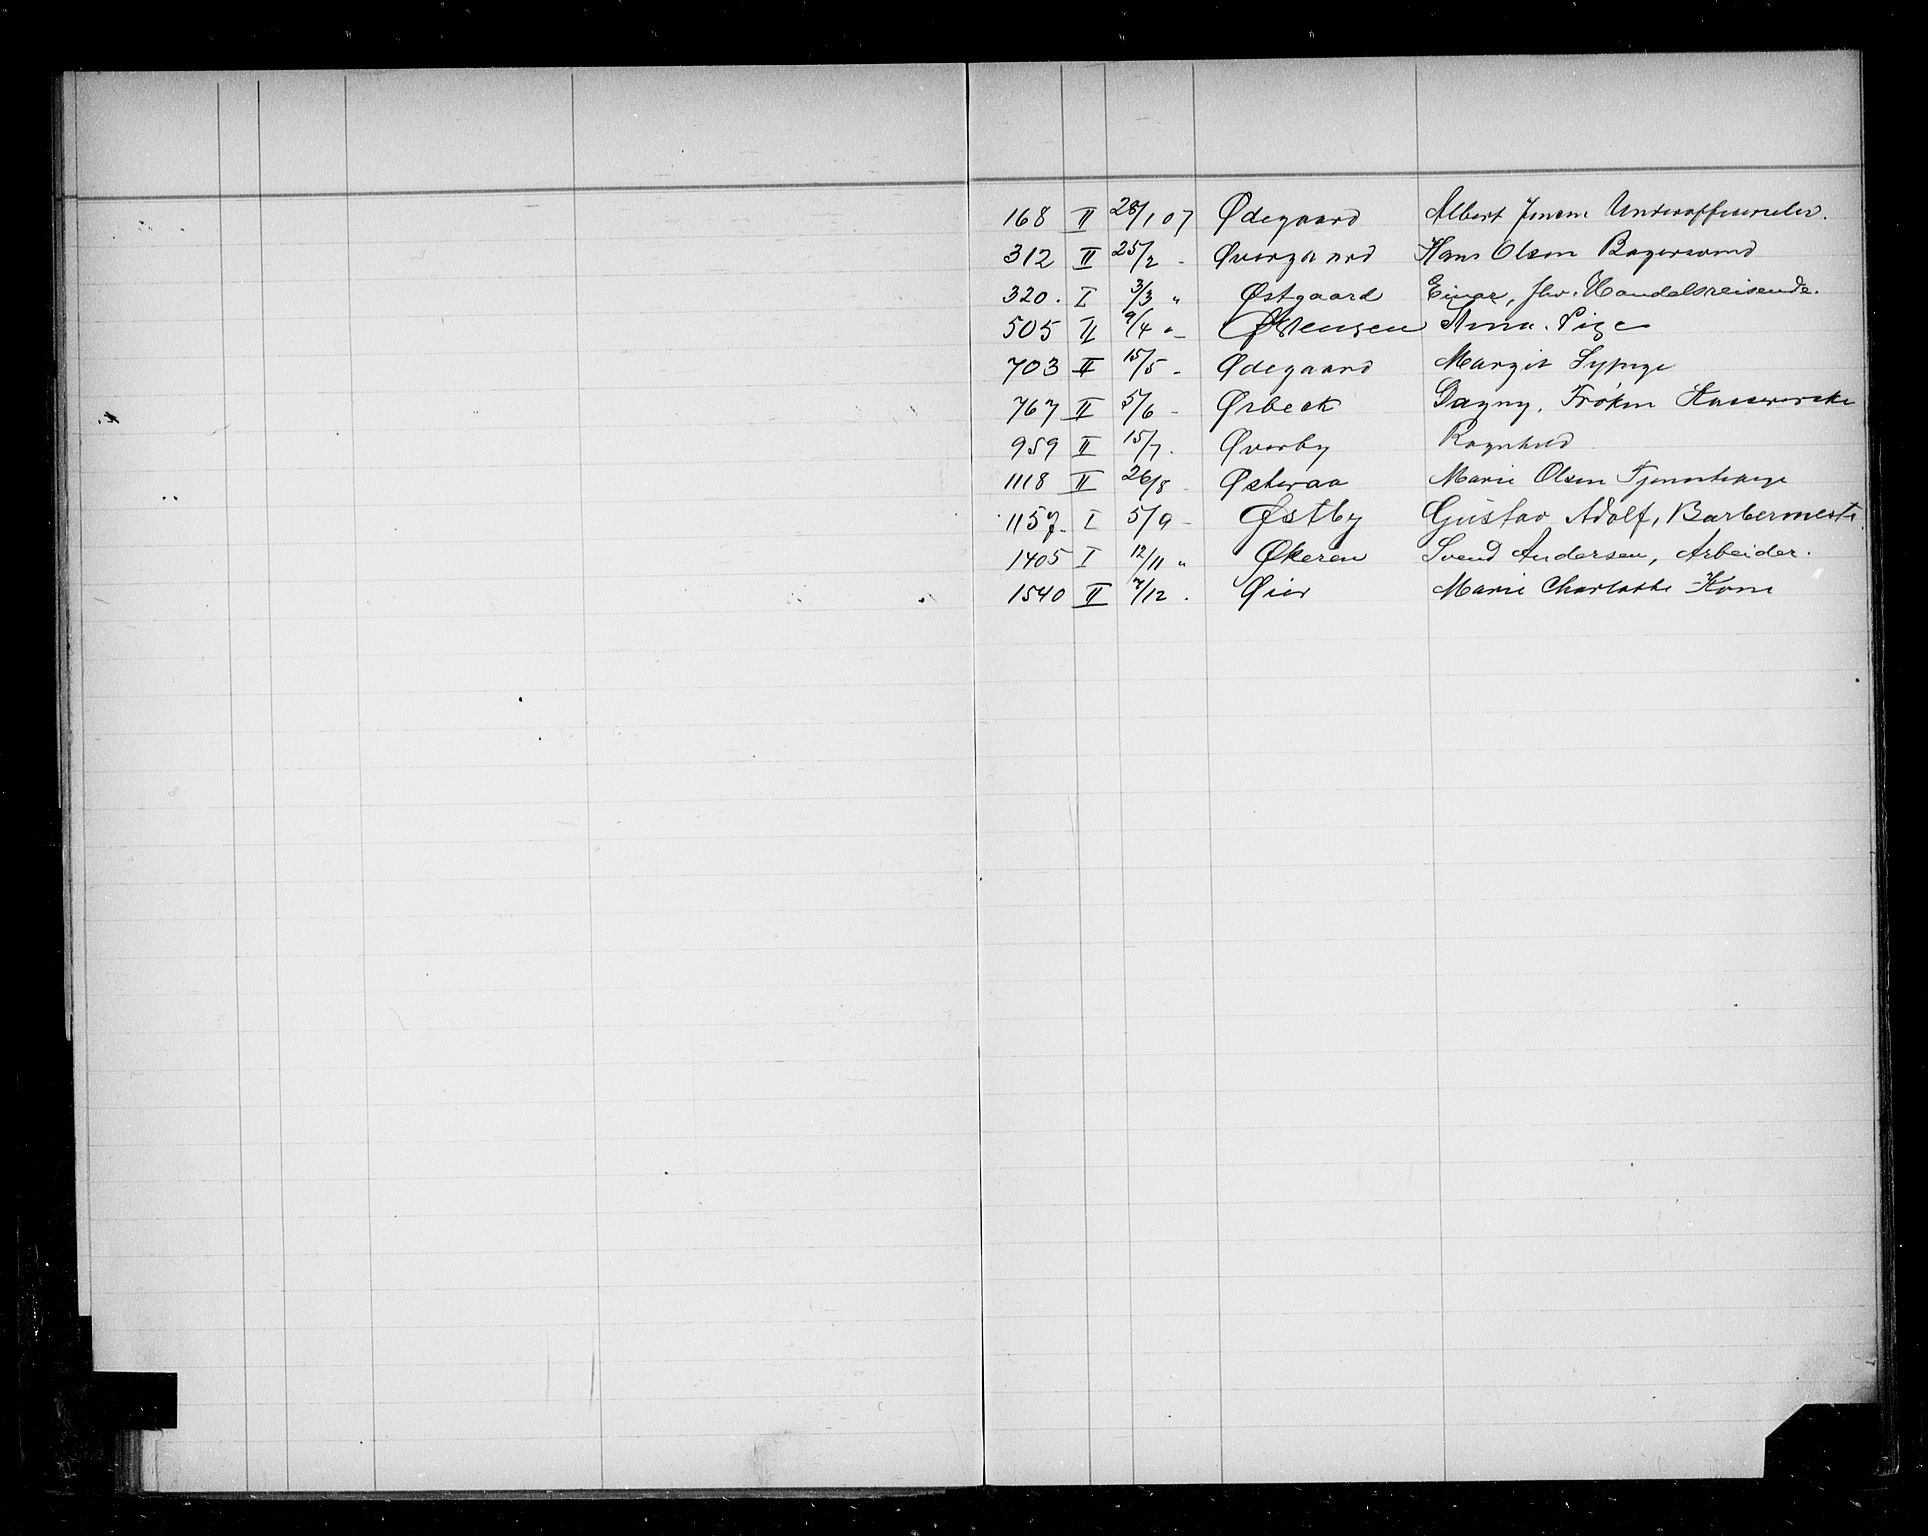 168 II 28/1 07 Ødegaard Albert Jensen Underofficerselev.
312 II 25/2 - Øvergaard Hans Olsen Bagersvend
320. I 3/3 " Østgaard Einar, fhv. Handelsreisende.
505 II 9/4 " - Østensen Anna. Pige
703 II 15/5 - Ødegaard Margit Sypige
767 II 5/6 - Ørbeck Dagny, Frøken
959 II 15/7. Øverby Ragnhild
1118 II 26/8 - Østeraa Marie Olsen Tjenestepige
1157. I 5/9 - Østby Gustav Adolf, Barbermest.
1405 I 12/11 " Økeren Svend Andersen, Arbeider.
1540 II 7/12. Øier Marie Charlotte Kone